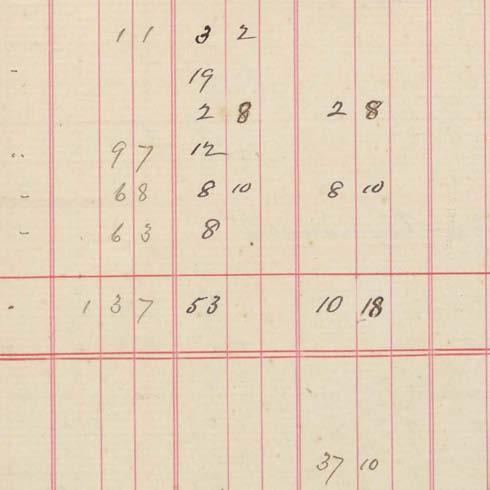 1 1 3 2
19
2 8 2 8
9 7 12
6 8 8 10 8 10
6 3 8
1 3 7 53 10 18
37 10